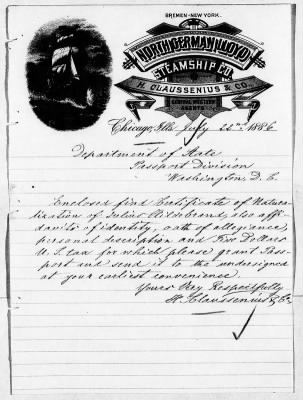 BREMEN-NEW YORK.
NORTH GERMAN LLOYD
STEAMSHIP CO.
H. CLAUSSENIUS & CO.
GENERAL WESTERN
AGENTS
Chicago, Ills July 22nd 1886
Department of State
Passport Division
Washington D. C.
Enclosed find Certificate of Natura-
lization of Julius Hildebrand, also affi-
davits of identity, oath of allegiance,
personal description and Five Dollars
U. S. tax for which please grant Pass-
port and send it to the undersigned
at your earliest convenience.
Yours Very Respectfully
H. Claussenius & Co.